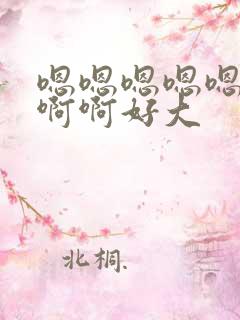 嗯嗯嗯嗯嗯
啊啊好大
北桐.